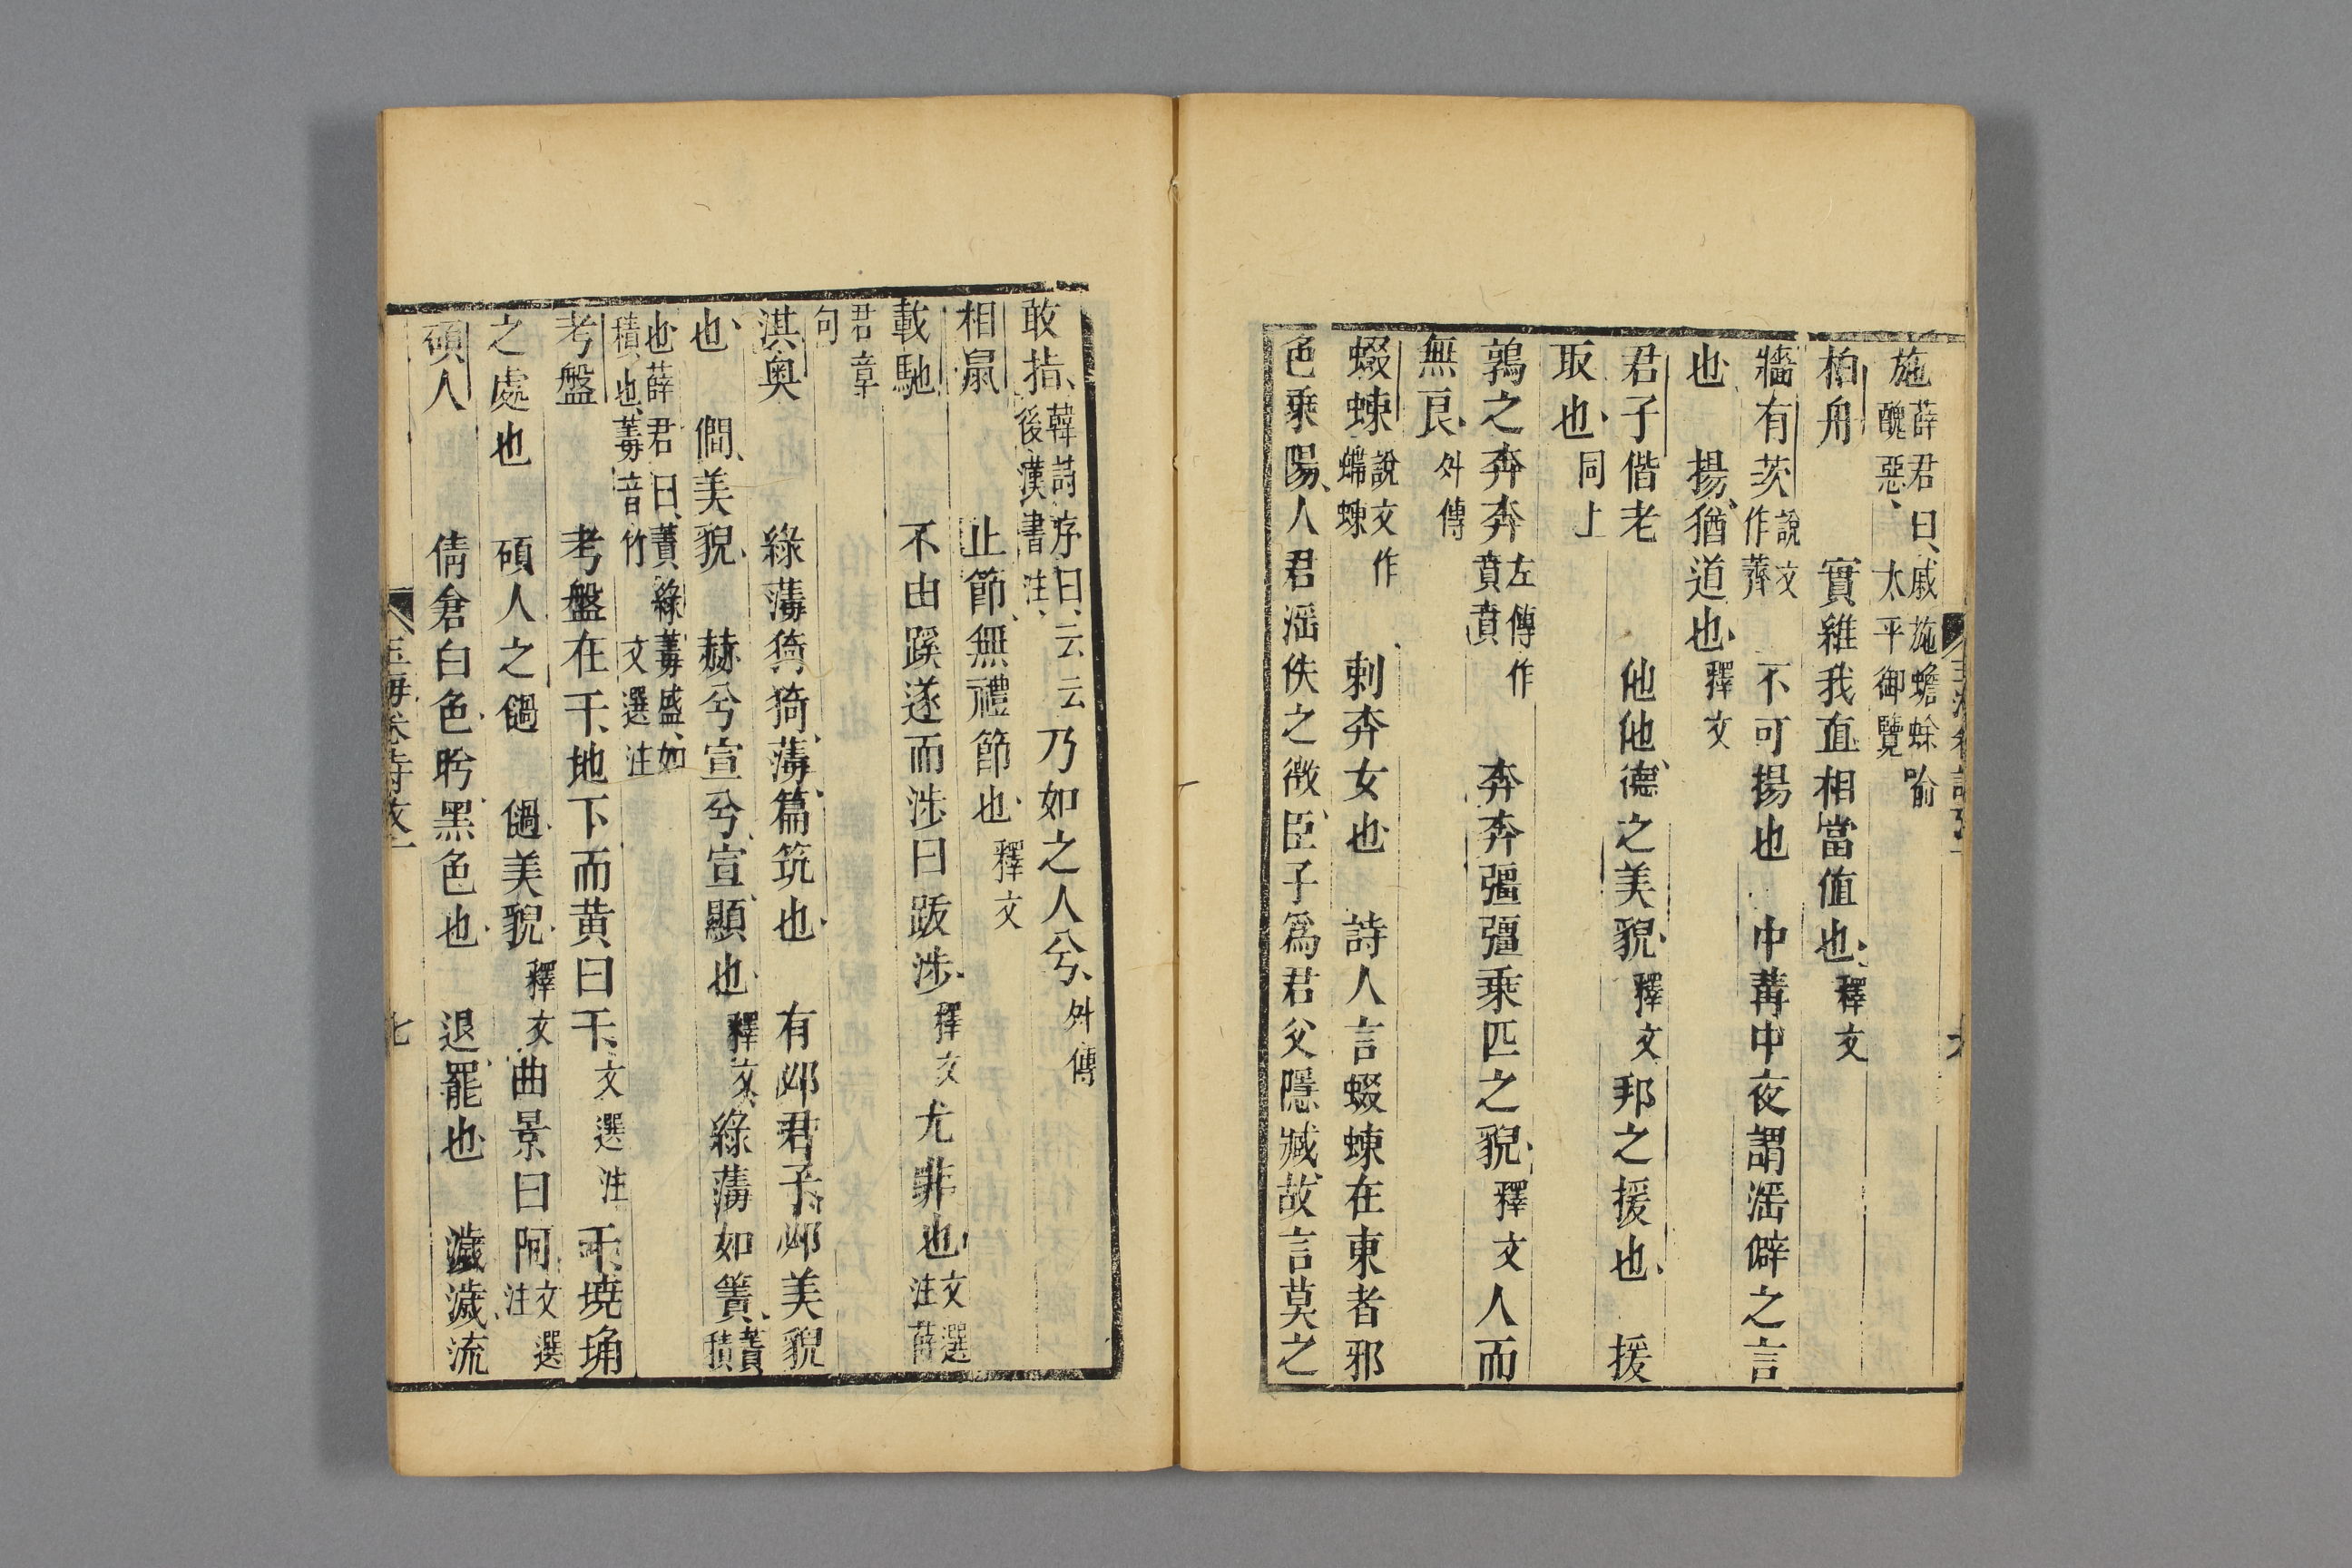 施薛君曰戚施蟾蜍喻醜惡太平御覽
柏舟　實維我直相當値也釋文
牆有茨說文作薺　不可揚也　中冓中夜謂滛僻之言
也　揚猶道也釋文
君子偕老　他他德之美貌釋文　邦之援也　援
取也同上
鶉之奔奔左傳作賁賁　奔奔彊彊乘匹之貌釋文　人而
無良外傳
蝃蝀說文作螮蝀　刺奔女也　詩人言蝃蝀在東者邪
色乗陽人君滛佚之徴臣子爲君父隱臧故言莫之
敢指韓詩序曰云云後漢書注　乃如之人兮外傳
相鼠　止節無禮節也釋文
載馳　不由蹊遂而涉曰跋涉釋文　尤非也文選注薛
君章句
淇奥　綠薄猗猗薄篇筑也　有邲君子邲美貌
也　僩美貌　赫兮宣兮宣顯也釋文　綠薄如簀簀積
也薛君曰簀綠䓯盛如積也䓯音竹文選注
考盤　考盤在干地下而黄曰干文選注　干墝埆
之處也　碩人之𠋥　𠋥美貌釋文　曲景曰阿文選注
碩人　倩倉白色盻黑色也　退罷也　濊濊流
玉海卷詩攷　七